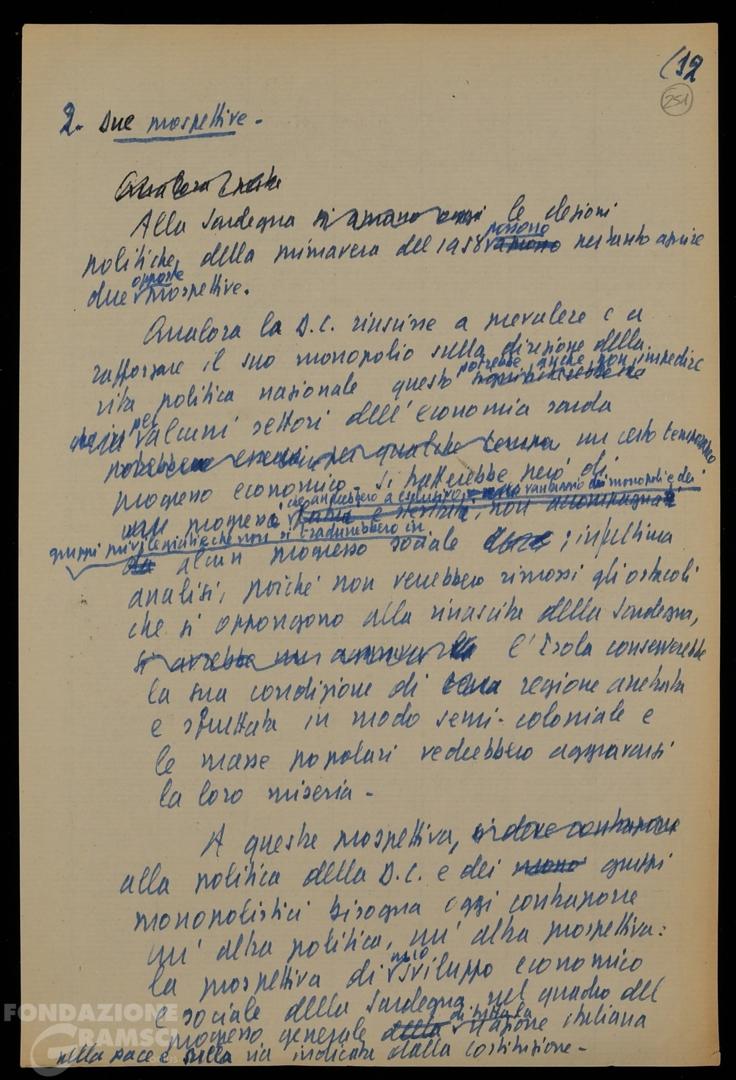 (12
251
2. Due prospettive.
Qualora
Alla Sardegna le elezioni
possono
politiche della primavera del 1958 pertanto aprire
opposte
due prospettive.
Qualora la D.C. riuscisse a prevalere e a
rafforzare il suo monopolio sulla direzione della
potrebbe anche non impedire
vita politica nazionale questo
per
che in alcuni settori dell'economia sarda
un certo temporaneo
progresso economico - si tratterebbe però di
che andrebbero a esclusivo vantaggio dei monopoli e dei
progressi non
gruppi privilegiati e che non si tradurrebbero in
alcun progresso sociale ; in ultima
analisi, poiché non verrebbero rimossi gli ostacoli
che si oppongono alla rinascita della Sardegna,
si avrebbe un l'Isola conserverebbe
la sua condizione di regione arretrata
e sfruttata in modo semi-coloniale e
le masse popolari vedrebbero aggravarsi
la loro miseria -
A questa prospettiva, si deve contrapporre
alla politica della D.C. e dei gruppi
monopolistici bisogna oggi contrapporre
un'altra politica, un'altra prospettiva:
la prospettiva di sviluppo economico
e sociale della Sardegna nel quadro del
di tutta
progresso generale della nazione italiana
nella pace e sulla via indicata dalla Costituzione -
FONDAZIONE
GRAMSCI